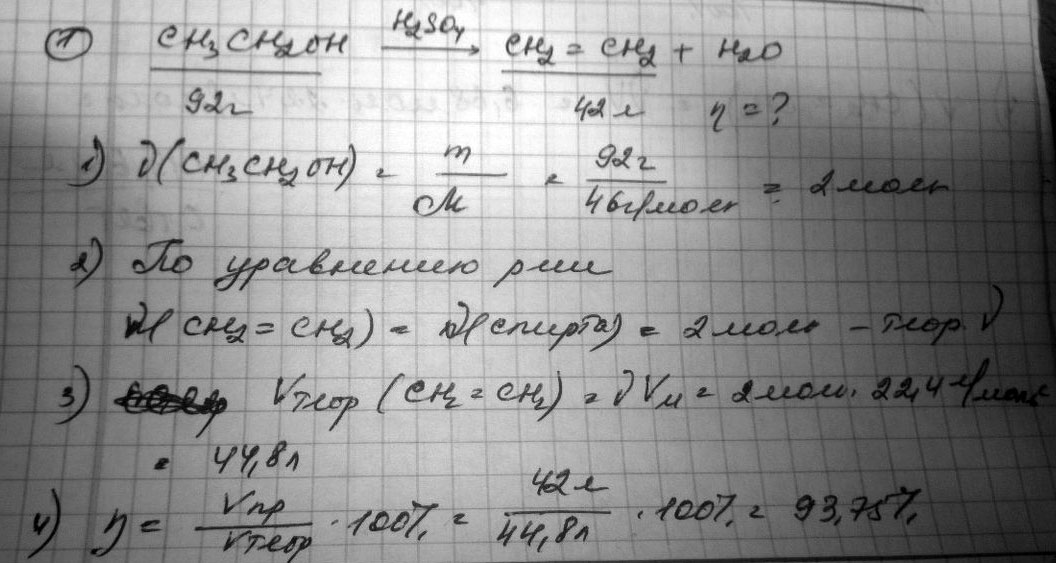 ① CH₃CH₂OH —H₂SO₄→ CH₂ = CH₂ + H₂O
92г 42л η = ?
1) ν(CH₃CH₂OH) = m/M = 92г/46г/моль = 2 моль
2) По уравнению р-ии
ν(CH₂ = CH₂) = ν(спирта) = 2 моль - теор. ν
3) Vтеор (CH₂ = CH₂) = νVм = 2 моль · 22,4 л/моль
= 44,8л
4) η = Vпр/Vтеор · 100% = 42л/44,8л · 100% = 93,75%